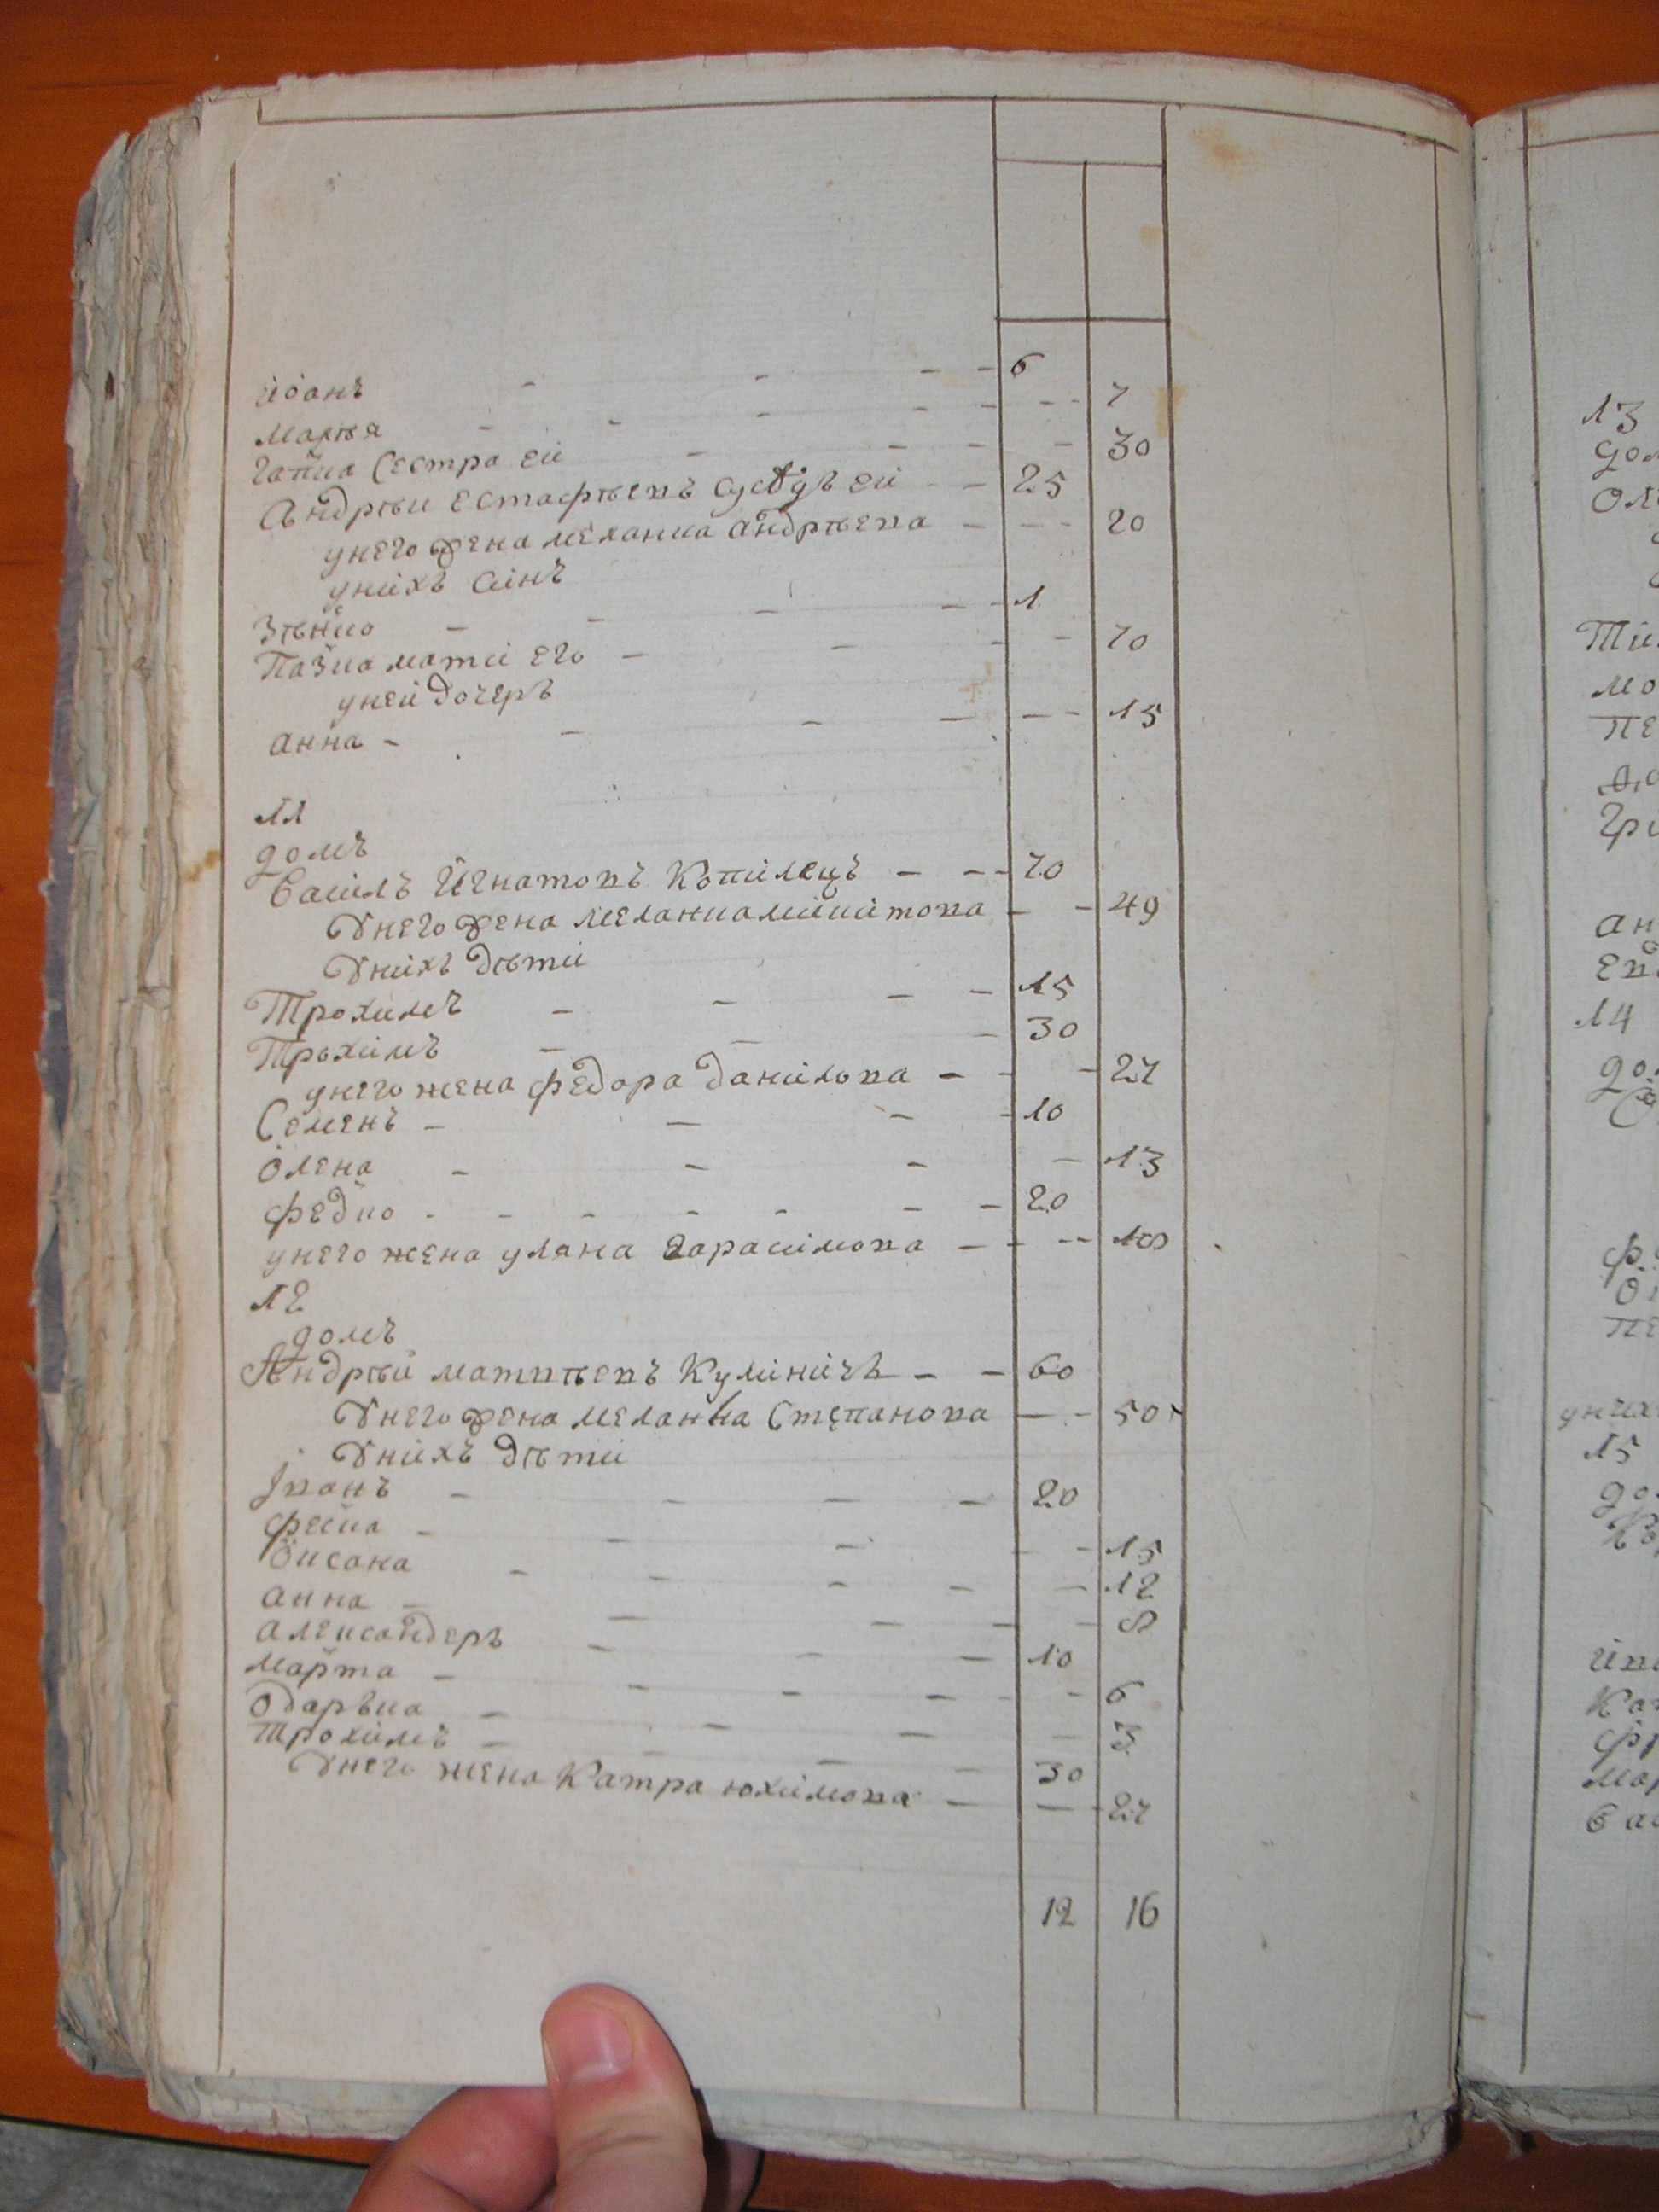 іванъ - - - - 6
марія - - - - - - 7
гапка сестра еи - - - - 30
Андрѣи Естафѣевъ сусѣдъ еи - - 25
унего жена меланка андрѣева - - - 20
унихъ синъ
Зѣнко - - - - - 1
Пазка мати его - - - - 70
уней дочеръ
анна - - - - - - 15
11
домъ
Василъ Игнатовъ Копилецъ - - - 70
Унего жена меланка микитова - - 49
Унихъ дѣти
Трохимъ - - - - 15
Трохимъ - - - 30
унего жена федора данилова - - 27
Семенъ - - - - 10
Олена - - - - 13
федко - - - - - - 20
унего жена уляна Гарасимова - - - 18
12
домъ
Андрѣй матвѣевъ Кулиничъ - - 60
Унего жена меланка Степанова - - 50
Унихъ дѣти
Іванъ - - - - 20
феська - - - - - 15
Оксана - - - - - 12
анна - - - - - 8
александеръ - - - 10
марта - - - - - 6
одарька - - - - 3
трохимъ - - - - 30
Унего жена Катра юхимова - - 27
12 16
13
дом
Тим
мо
пе
Гри
ан
14
до
унихъ
15
до
Мар